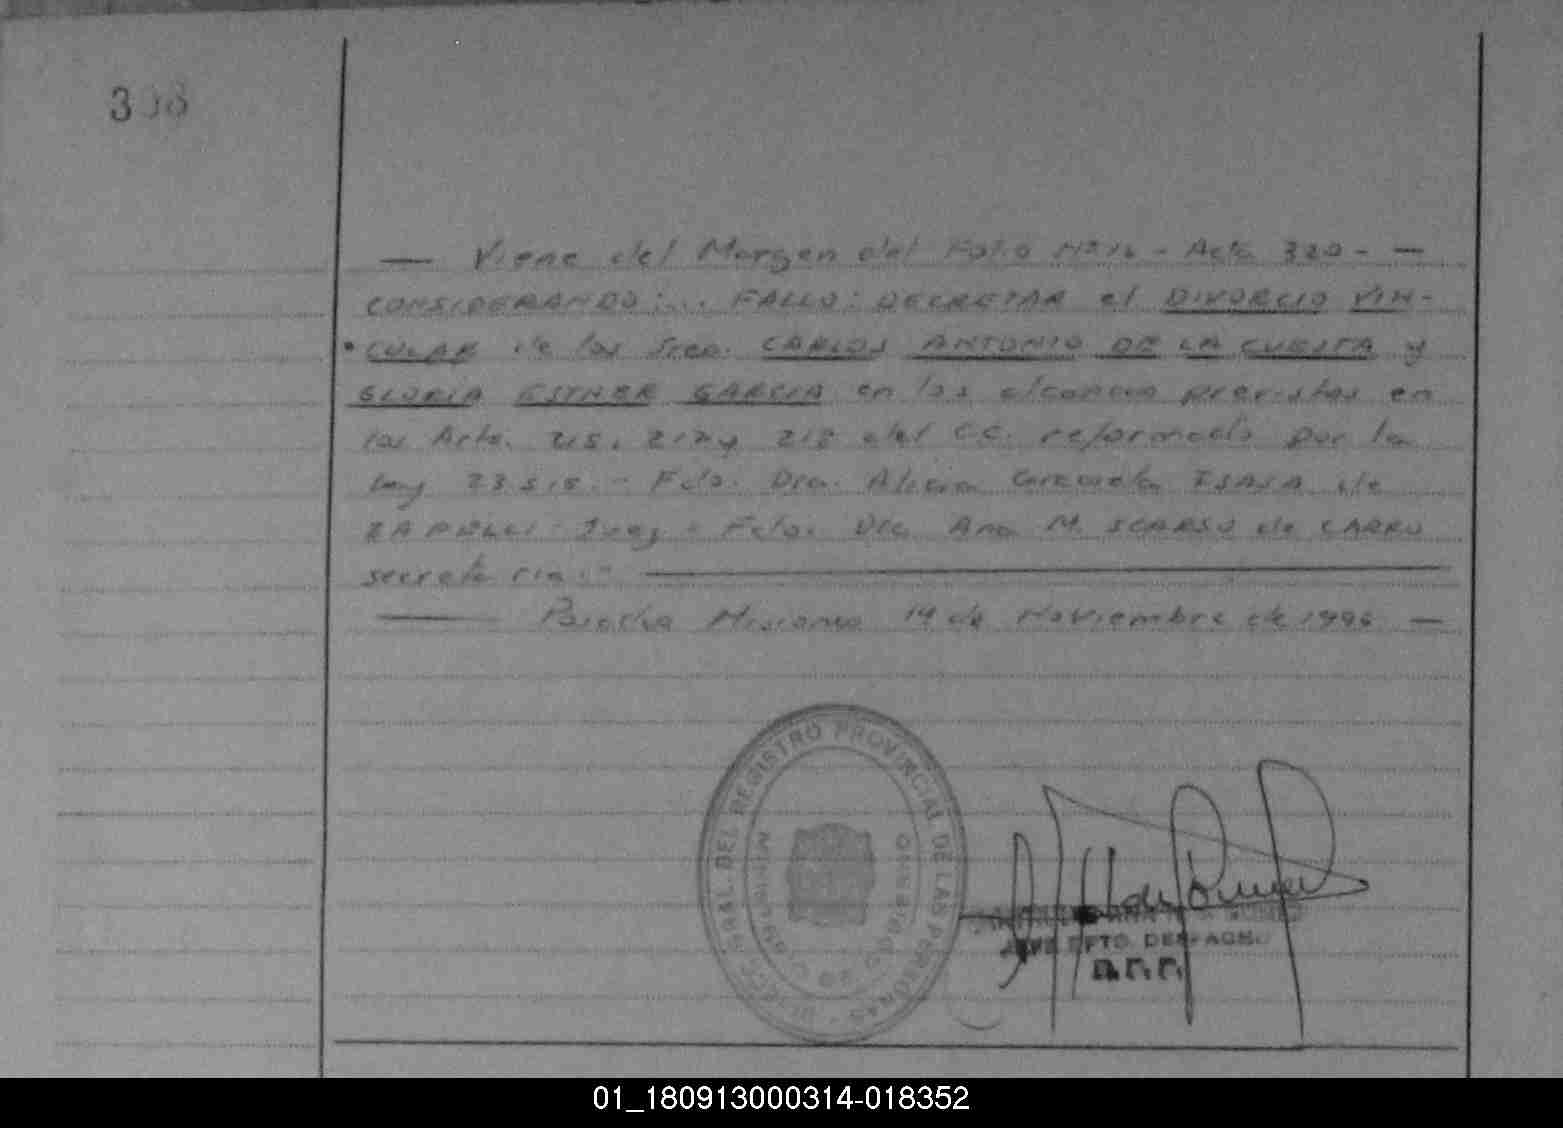 308
— Viene del Margen del Folio Nº 16 - Acta 320 - —
CONSIDERANDO:... FALLO: DECRETAR el DIVORCIO VIN-
CULAR de los Sres. CARLOS ANTONIO DE LA CUESTA y
GLORIA ESTHER GARCIA en los alcances previstos en
los Arts. 215, 217 y 218 del C.C. reformado por la
Ley 23.515.- Fdo. Dra. Alicia Graciela ISASA de
Juez - Fdo. Dra. Ana M. SCARSO de CARRO
secretaria.-
Posadas Misiones 14 de Noviembre de 1996 —
DIRECC. GRAL. DEL REGISTRO PROVINCIAL DE LAS PERSONAS
MINIST. DE GOBIERNO
JEFE DPTO. DESPACHO
01_180913000314-018352